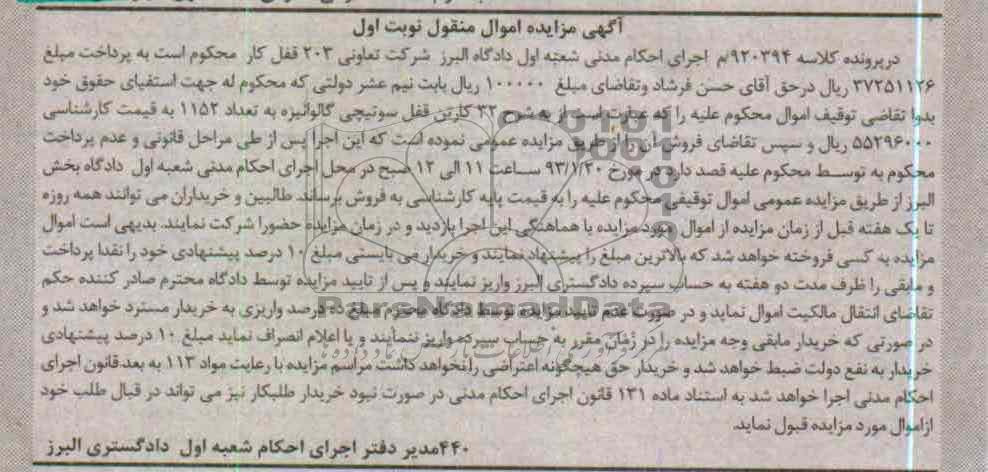 آگهی مزایده اموال منقول نوبت اول
درپرونده کلاسه ۹۲۰۳۹۴م اجرای احکام مدنی شعبه اول دادگاه البرز شرکت تعاونی ۲۰۳ قفل کار محکوم است به پرداخت مبلغ
۳۷۲۵۱۱۲۶ ریال درحق آقای حسن فرشاد وتقاضای مبلغ ۱۰۰۰۰۰ ریال بابت نیم عشر دولتی که محکوم له جهت استفیای حقوق خود
بدوا تقاضی توقیف اموال محکوم علیه را که عبارت است از به شرح ۳۲ کارتن قفل سوئیچی گالوانیزه به تعداد ۱۱۵۲ به قیمت کارشناسی
۵۵۲۹۶۰۰۰ ریال و سپس تقاضای فروش آن را از طریق مزایده عمومی نموده است که این اجرا پس از طی مراحل قانونی و عدم پرداخت
محکوم به توسط محکوم علیه قصد دارد در مورخ ۹۳/۱/۳۰ ساعت ۱۱ الی ۱۲ صبح در محل اجرای احکام مدنی شعبه اول دادگاه بخش
البرز از طریق مزایده عمومی اموال توقیفی محکوم علیه را به قیمت پایه کارشناسی به فروش برساند. طالبین و خریداران می توانند همه روزه
تا یک هفته قبل از زمان مزایده از اموال مورد مزایده با هماهنگی این اجرا بازدید و در زمان مزایده حضورا شرکت نمایند. بدیهی است اموال
مزایده به کسی فروخته خواهد شد که بالاترین مبلغ را پیشنهاد نمایند و خریدار می بایستی مبلغ ۱۰ درصد پیشنهادی خود را نقدا پرداخت
و مابقی را ظرف مدت دو هفته به حساب سپرده دادگستری البرز واریز نمایند و پس از تایید مزایده توسط دادگاه محترم صادر کننده حکم
تقاضای انتقال مالکیت اموال نماید و در صورت عدم تایید مزایده توسط دادگاه محترم مبلغ ده درصد واریزی به خریدار مسترد خواهد شد و
در صورتی که خریدار مابقی وجه مزایده را در زمان مقرر به حساب سپرده واریز ننمایند و یا اعلام انصراف نماید مبلغ ۱۰ درصد پیشنهادی
خریدار به نفع دولت ضبط خواهد شد و خریدار حق هیچگونه اعتراضی را نخواهد داشت مراسم مزایده با رعایت مواد ۱۱۳ به بعد قانون اجرای
احکام مدنی اجرا خواهد شد به استناد ماده ۱۳۱ قانون اجرای احکام مدنی در صورت نبود خریدار طلبکار نیز می تواند در قبال طلب خود
ازاموال مورد مزایده قبول نماید.
۴۴۰مدیر دفتر اجرای احکام شعبه اول دادگستری البرز
ParsNamadData